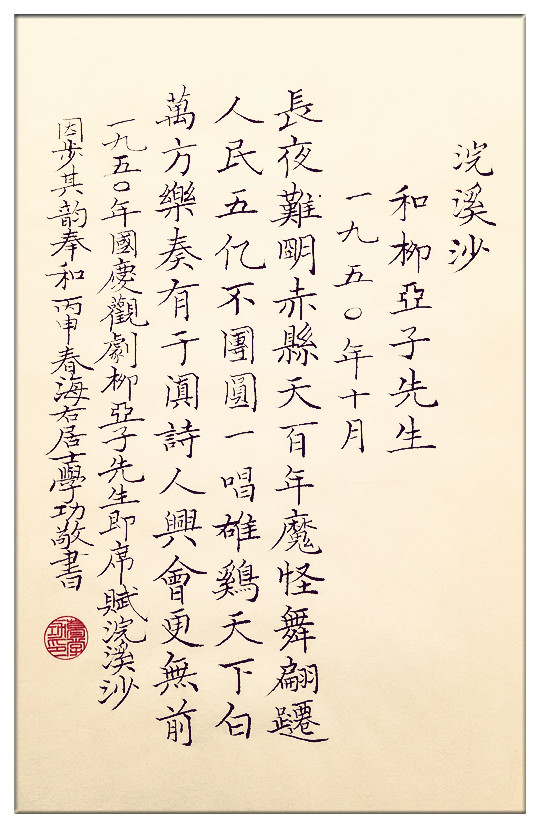 浣溪沙
和柳亞子先生
一九五〇年十月
長夜難明赤縣天百年魔怪舞翩躚
人民五亿不團圓一唱雄鷄天下白
萬方樂奏有于闐詩人興會更無前
一九五〇年國慶觀劇柳亞子先生即席賦浣溪沙
因步其韵奉和丙申春海右居士學功敬書